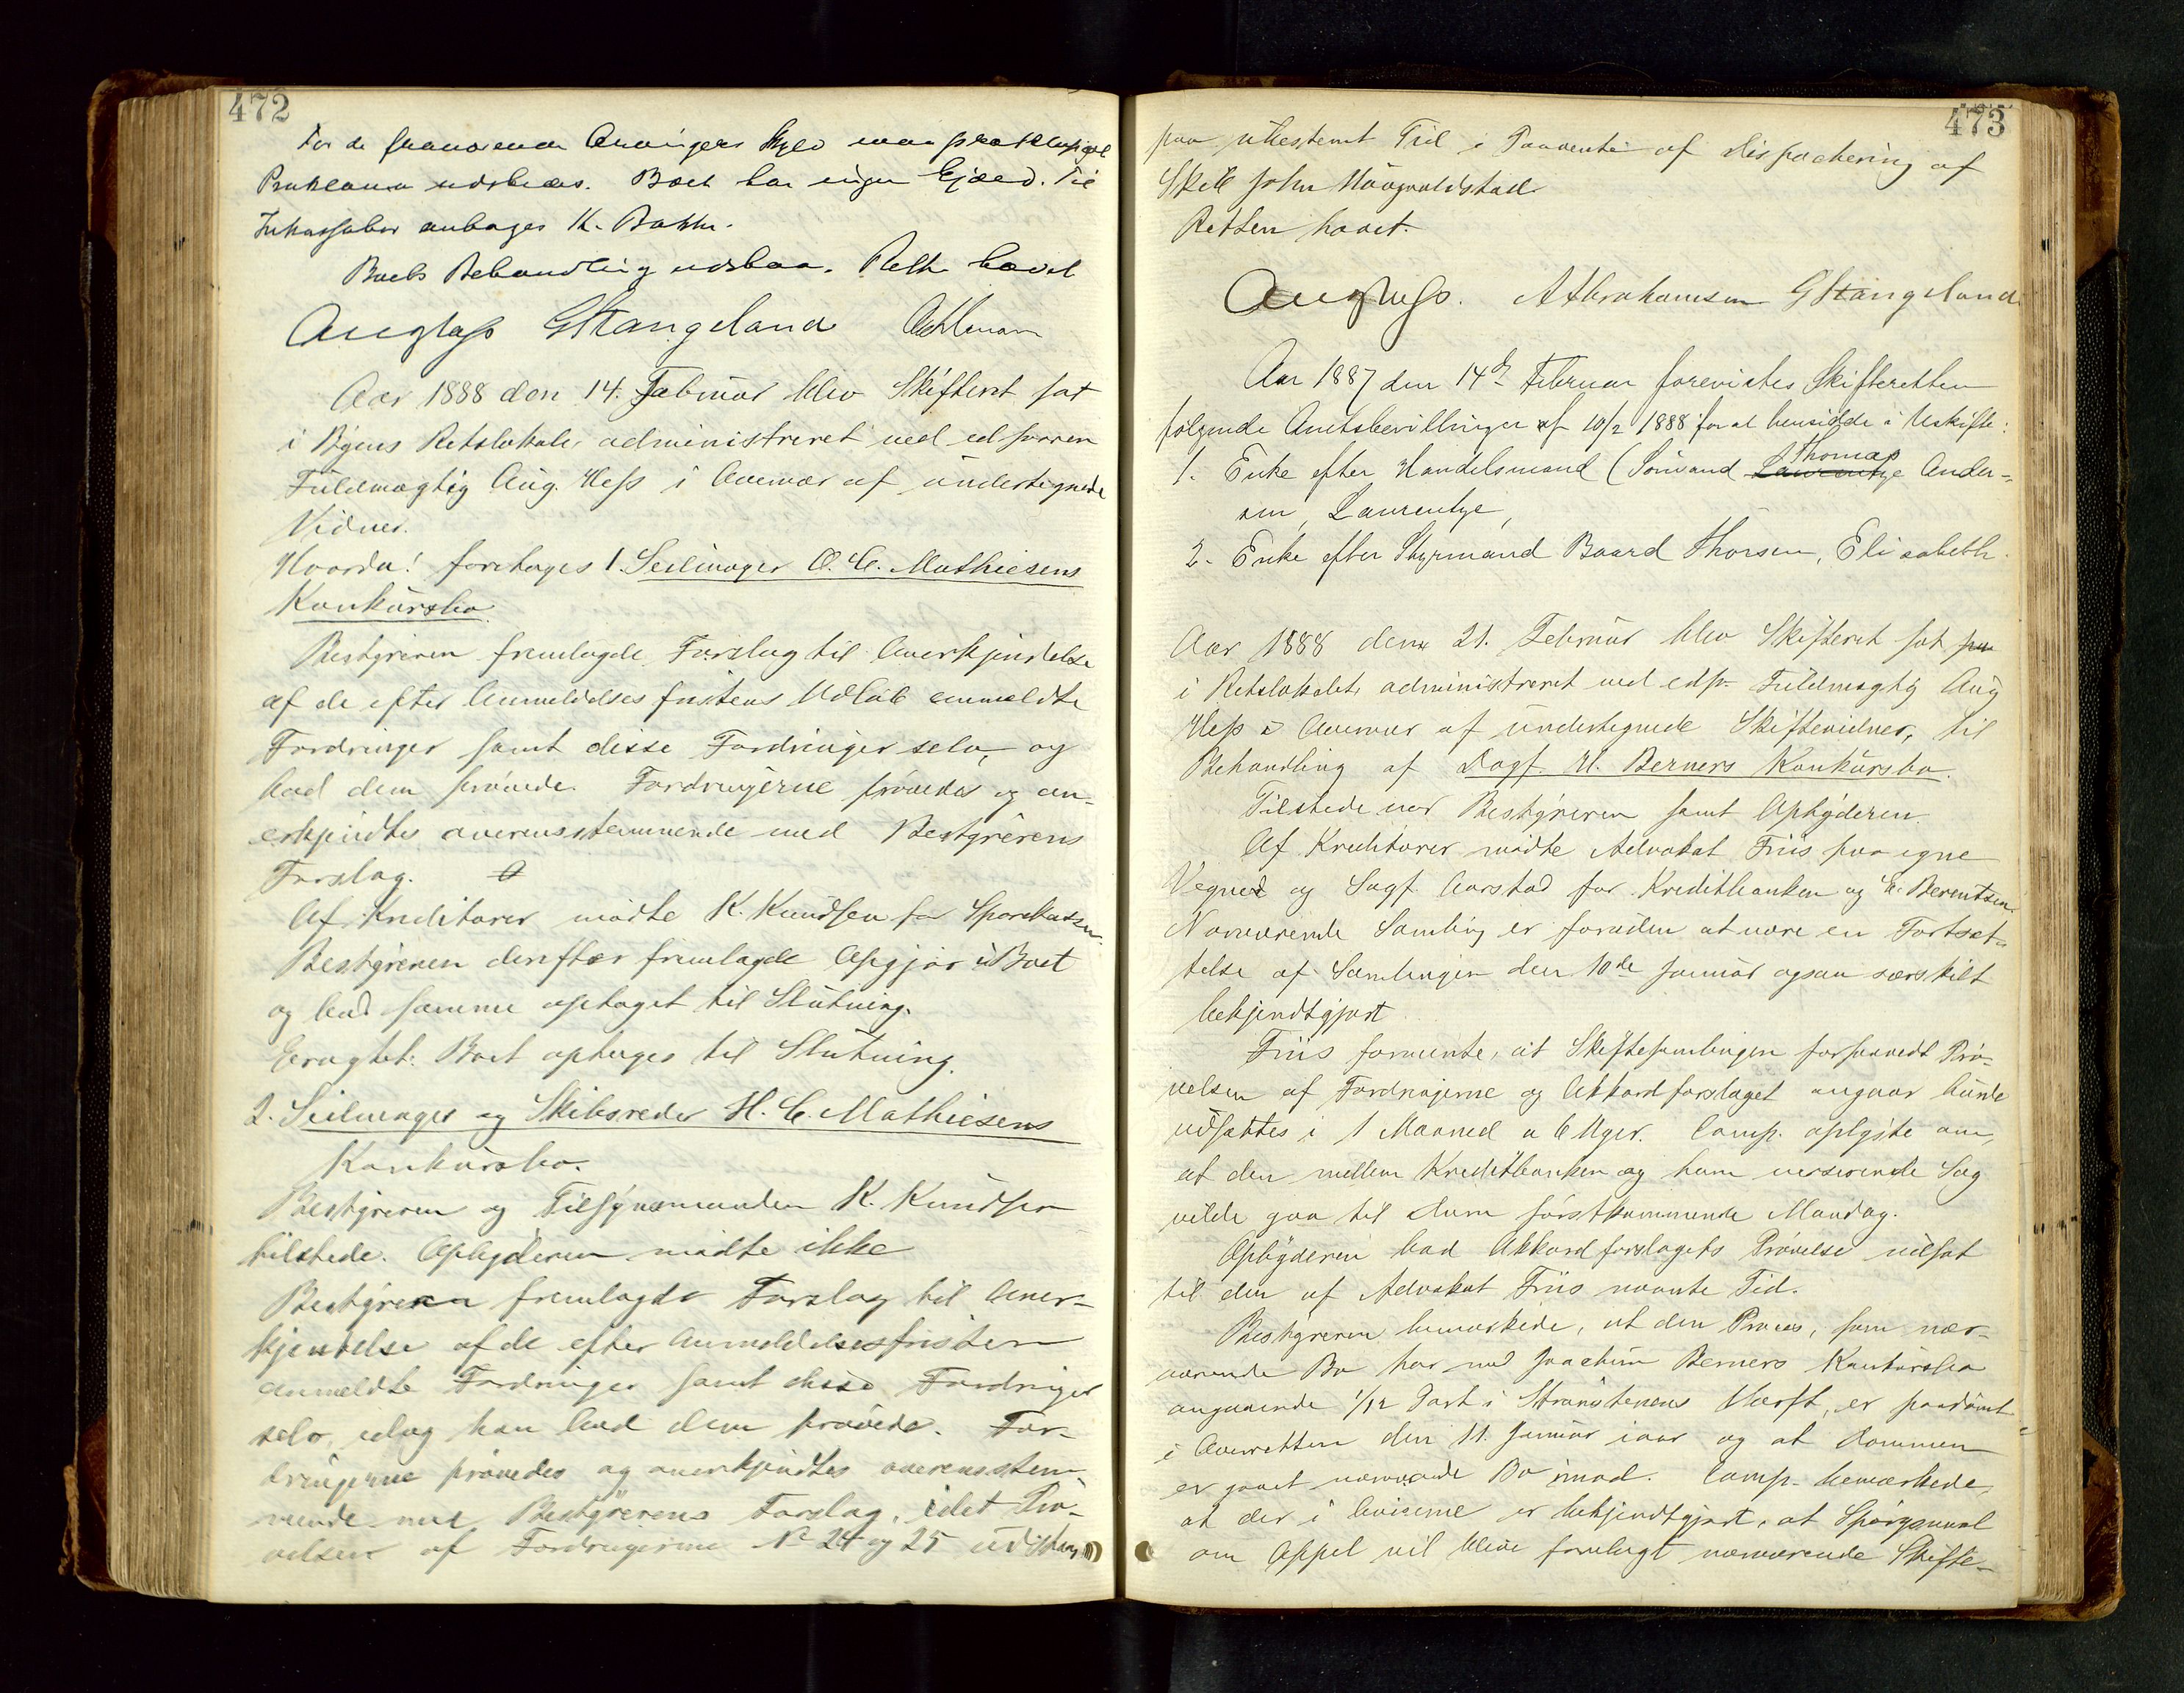 472
For de fraværende Arvingers Skyld maa præklusivt
Proklama udstedes. Boet har ingen Gjæld. Til
Inkassator antages K. Bakke.
Boets Behandling udstaar. Retten hævet
Aug Hess GStangeland
Aar 1888 den 14. Februar blev Skifteret sat
i Byens Retslokale administreret ved edsvoren
Fuldmægtig Aug. Hess i Overvær af undertegnede
Vidner.
Hvorda! foretages 1. Seilmager O. C. Mathiesens
Konkursbo.
Bestyreren fremlagde Forslag til Anerkjendelse
af de efter Anmeldelsesfristens Udløb anmeldte
Fordringer samt disse Fordringer selv, og
bad dem prøvede. Fordringerne prøvedes og an-
erkjendtes overensstemmende med Bestyrerens
Forslag.
Af Kreditorer mødte K. Knudsen for Sparekassen.
Bestyreren derefter fremlagde Opgjør i Boet
og bad samme optaget til Slutning.
Eragtet: Boet optages til Slutning.
2. Seilmager og Skibsreder H. C. Mathiesens
Konkursbo.
Bestyreren og Tilsynsmanden K. Knudsen
tilstede. Opbyderen mødte ikke
Bestyreren fremlagde Forslag til Aner-
kjendelse af de efter Anmeldelsesfristen
anmeldte Fordringer samt disse Fordringer
selv, idag han bad dem prøvede. For-
dringerne prøvedes og anerkjendtes overensstem-
mende med Bestyrerens Forslag, idet Prø-
velsen af Fordringerne No 24 og 25 udstaar
473
paa ubestemt Tid i Paavente af Dispachering af
Skib John Haagvaldstad
Retten hævet.
Aug Hess. AAbrahamsen GStangeland
Aar 1887 den 14de Februar forevistes Skifteretten
følgende Amtsbevillinger af 10/2 1888 for at hensidde i Uskifte:
1. Enke efter Handelsmand (Sømand Laurentze Thomas Ander-
sen, Laurentze,
2. Enke efter Styrmand Baard Thorsen, Elisabeth.
Aar 1888 den 21. Februar blev Skifteret sat paa
i Retslokalet administreret ved edsv. Fuldmægtig Aug
Hess i Overvær af undertegnede Skiftevidner, til
Behandling af Dagf. H. Berners Konkursbo.
Tilstede var Bestyreren samt Opbyderen.
Af Kreditorer mødte Advokat Friis paa egne
Vegne og Sagf. Aarstad for Kreditbanken og H. Berentsen.
Nærværende Samling er foruden at være en Fortsæt-
telse af Samlingen den 10de Januar ogsaa særskilt
bekjendtgjort.
Friis formente, at Skiftesamlingen forsaavidt Prø-
velsen af Fordringerne og Akkordforslaget angaar burde
udsættes i 1 Maaned a 6 Uger. Comp. oplyste om,
at den mellem Kreditbanken og ham verserende Sag
vilde gaa til Dom førstkommende Mandag.
Opbyderen bad Akkordforslagets Prøvelse udsat
til den af Advokat Friis nævnte Tid.
Bestyreren bemærkede, at den Proces, som nær-
værende Bo har med Joachim Berners Konkursbo
angaaende 1/12 Part i Strømstenens Værft, er paadømt
i Overretten den 11. Januar iaar og at Dommen
er gaaet nærværende Bo imod. Comp. bemærkede,
at der i Aviserne er bekjendtgjort, at Spørgsmaal
om Appel vil blive forelagt nærværende Skifte-